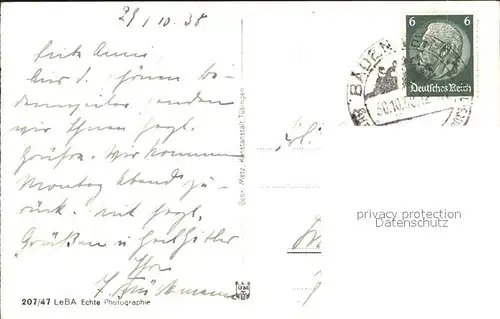 29/10.38
Aus d. schönen Ba-
denweiler senden
wir Ihnen herzl.
Grüße. Wir kommen
Montag Abend zu-
rück. Mit herzl.
Grüßen u Heil Hitler
Ihr
207/47 LeBA Echte Photographie
Gebr. Metz, Kunstanstalt, Tübingen
6 6
Deutsches Reich
BADEN
30.10.
privacy protection
Datenschutz